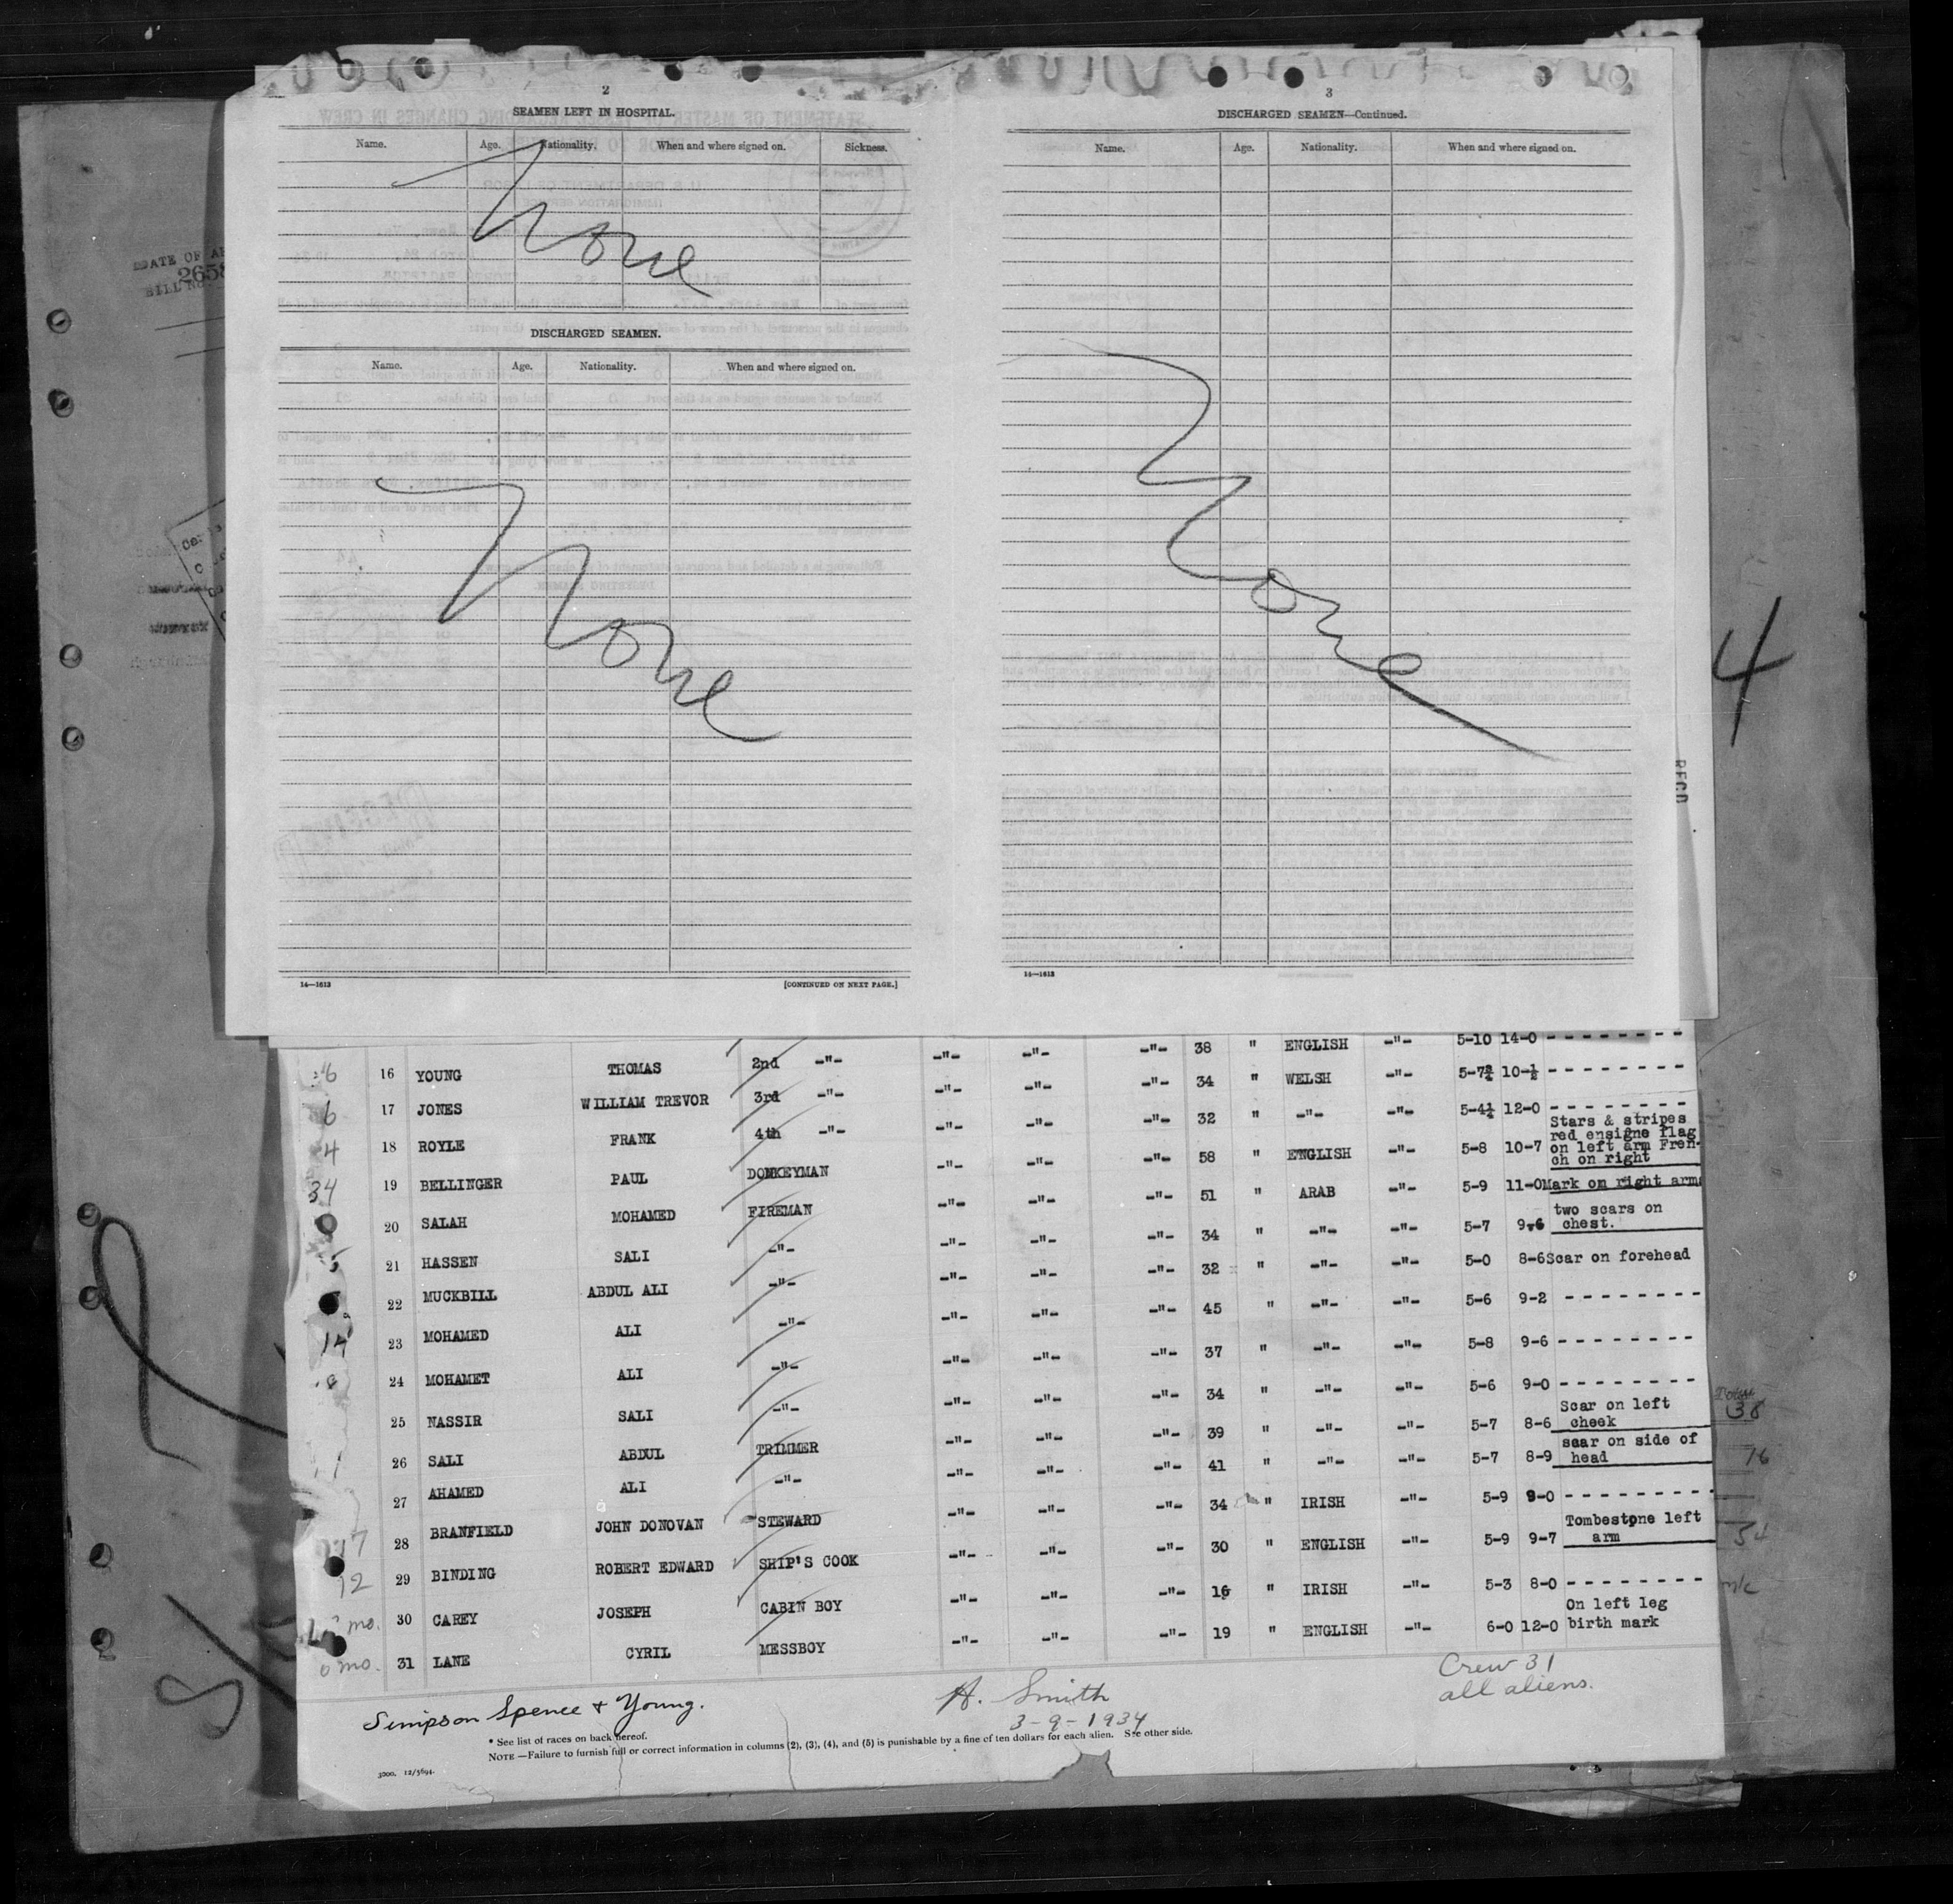 2
SEAMEN LEFT IN HOSPITAL.
Name. Age. Nationality. When and where signed on. Sickness.
None
DISCHARGED SEAMEN.
Name. Age. Nationality. When and where signed on.
None
14—1613 [CONTINUED ON NEXT PAGE.]
3
DISCHARGED SEAMEN—Continued.
Name. Age. Nationality. When and where signed on.
None
14—1613
4
RECD
16 YOUNG THOMAS 2nd -"- -"- -"- -"- 38 " ENGLISH -"- 5-10 14-0 - - - - - - - -
6 17 JONES WILLIAM TREVOR 3rd -"- -"- -"- -"- 34 " WELSH -"- 5-7¾ 10-½ - - - - - - - -
4 18 ROYLE FRANK 4th -"- -"- -"- -"- 32 " -"- -"- 5-4¼ 12-0 - - - - - - - -
34 19 BELLINGER PAUL DONKEYMAN -"- -"- -"- 58 " ENGLISH -"- 5-8 10-7 Stars & stripes
red ensigne flag
on left arm Fren-
ch on right
20 SALAH MOHAMED FIREMAN -"- -"- -"- 51 " ARAB -"- 5-9 11-0 Mark on right arm
21 HASSEN SALI -"- -"- -"- -"- 34 " -"- -"- 5-7 9-6 two scars on
chest.
22 MUCKBILL ABDUL ALI -"- -"- -"- -"- 32 " -"- -"- 5-0 8-6 Scar on forehead
14 23 MOHAMED ALI -"- -"- -"- -"- 45 " -"- -"- 5-6 9-2 - - - - - - - -
24 MOHAMET ALI -"- -"- -"- -"- 37 " -"- -"- 5-8 9-6 - - - - - - - -
25 NASSIR SALI -"- -"- -"- -"- 34 " -"- -"- 5-6 9-0 - - - - - - - -
26 SALI ABDUL TRIMMER -"- -"- -"- 39 " -"- -"- 5-7 8-6 Scar on left
cheek
27 AHAMED ALI -"- -"- -"- -"- 41 " -"- -"- 5-7 8-9 scar on side of
head
28 BRANFIELD JOHN DONOVAN STEWARD -"- -"- -"- 34 " IRISH -"- 5-9 9-0 - - - - - - - -
12 29 BINDING ROBERT EDWARD SHIP'S COOK -"- -"- -"- 30 " ENGLISH -"- 5-9 9-7 Tombestone left
arm
mo. 30 CAREY JOSEPH CABIN BOY -"- -"- -"- 16 " IRISH -"- 5-3 8-0 - - - - - - - -
mo. 31 LANE CYRIL MESSBOY -"- -"- -"- 19 " ENGLISH -"- 6-0 12-0 On left leg
birth mark
Crew 31
all aliens.
Simpson Spence & Young.
A. Smith
3-9-1934
* See list of races on back hereof.
NOTE.—Failure to furnish full or correct information in columns (2), (3), (4), and (5) is punishable by a fine of ten dollars for each alien. See other side.
3000. 12/5694.
38
76
54